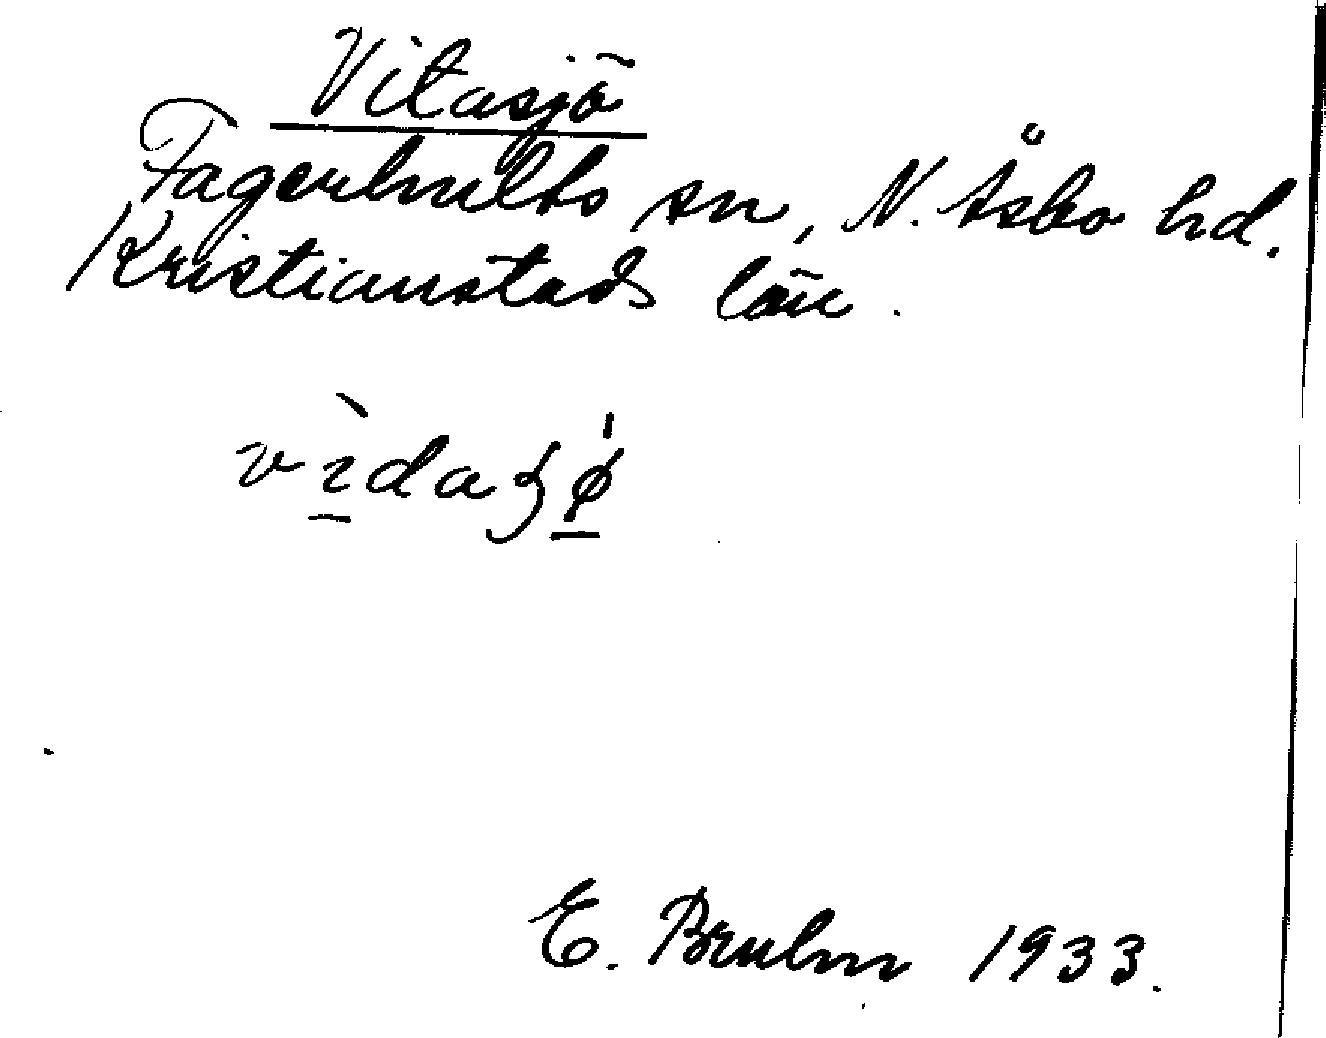 Vitasjö
Fagerhults sn, N. Åsbo hd.
Kristianstads län.
E. Bruhn 1933.